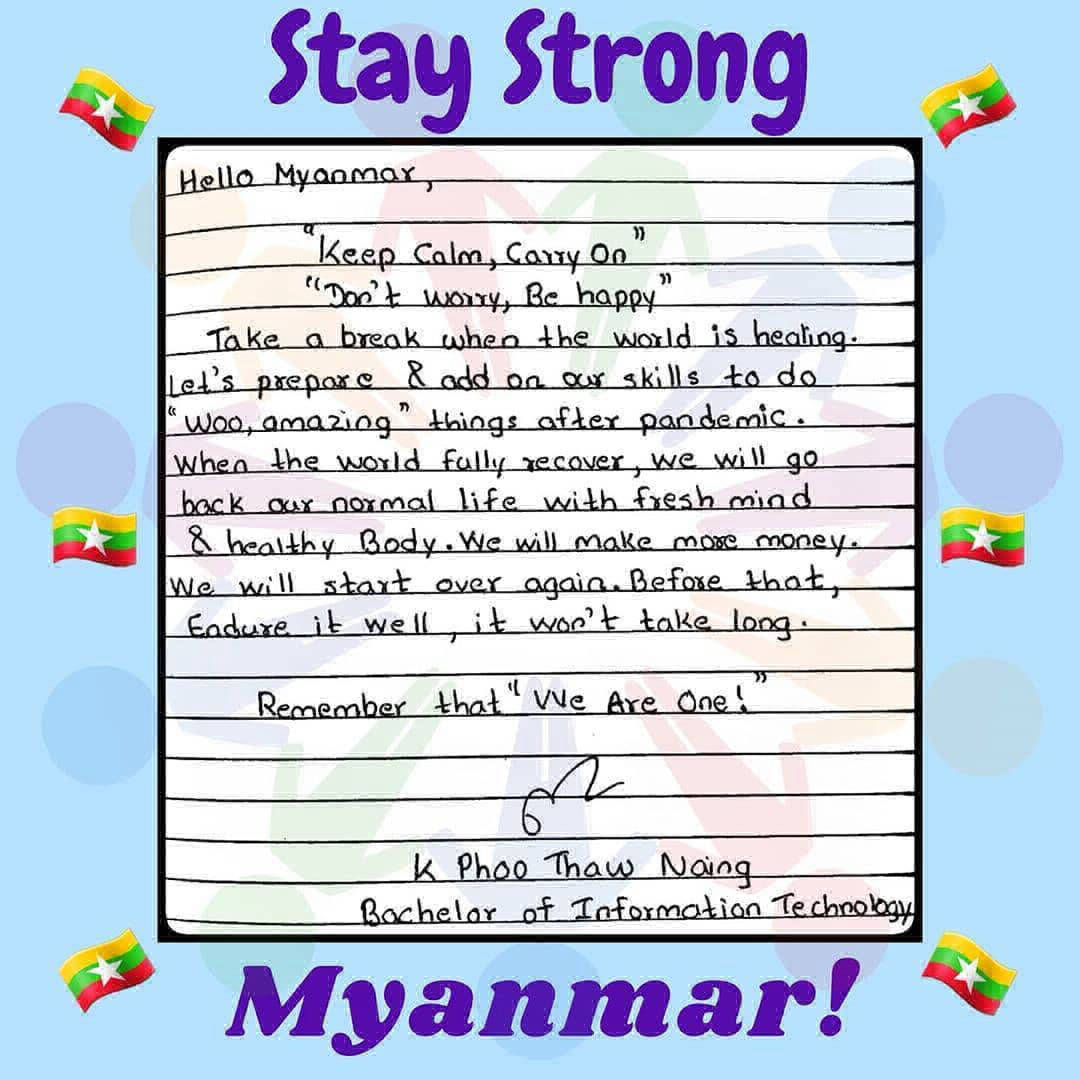 Stay Strong
Hello Myanmar,
"Keep Calm, Carry On"
"Don't worry, Be happy"
Take a break when the world is healing.
Let's prepare & add on our skills to do
"Woo, amazing" things after pandemic.
When the world fully recover, we will go
back our normal life with fresh mind
& healthy Body. We will make more money.
We will start over again. Before that,
Endure it well, it won't take long.
Remember that "We Are One!"
K Phoo Thaw Naing
Bachelor of Information Technology
Myanmar!